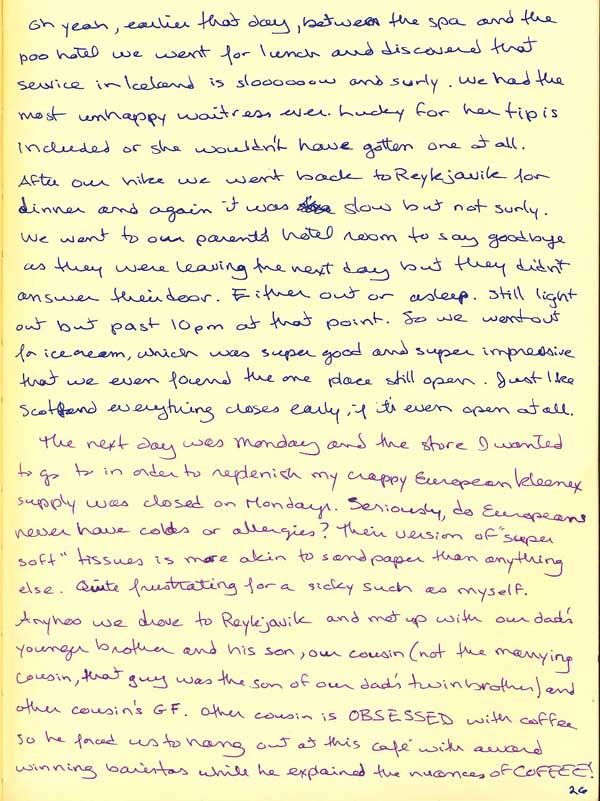 Oh yeah, earlier that day, between the spa and the
poo hotel we went for lunch and discovered that
service in Iceland is sloooooow and surly. We had the
most unhappy waitress ever. Lucky for her tip is
included or she wouldn't have gotten one at all.
After our hike we went back to Reykjavik for
dinner and again it was slow but not surly.
We went to our parents' hotel room to say goodbye
as they were leaving the next day but they didn't
answer their door. Either out or asleep. Still light
out but past 10pm at that point. So we went out
for icecream, which was super good and super impressive
that we even found the one place still open. Just like
Scotland everything closes early, if it's even open at all.
The next day was Monday and the store I wanted
to go to in order to replenish my crappy European kleenex
supply was closed on Mondays. Seriously, do Europeans
never have colds or allergies? Their version of "super
soft" tissues is more akin to sandpaper than anything
else. Quite frustrating for a sicky such as myself.
Anyhoo we drove to Reykjavik and met up with our dad's
younger brother and his son, our cousin (not the marrying
cousin, that guy was the son of our dad's twin brother) and
other cousin's GF. Other cousin is OBSESSED with coffee
so he forced us to hang out at this café with award
winning baristas while he explained the nuances of COFFEE!
26